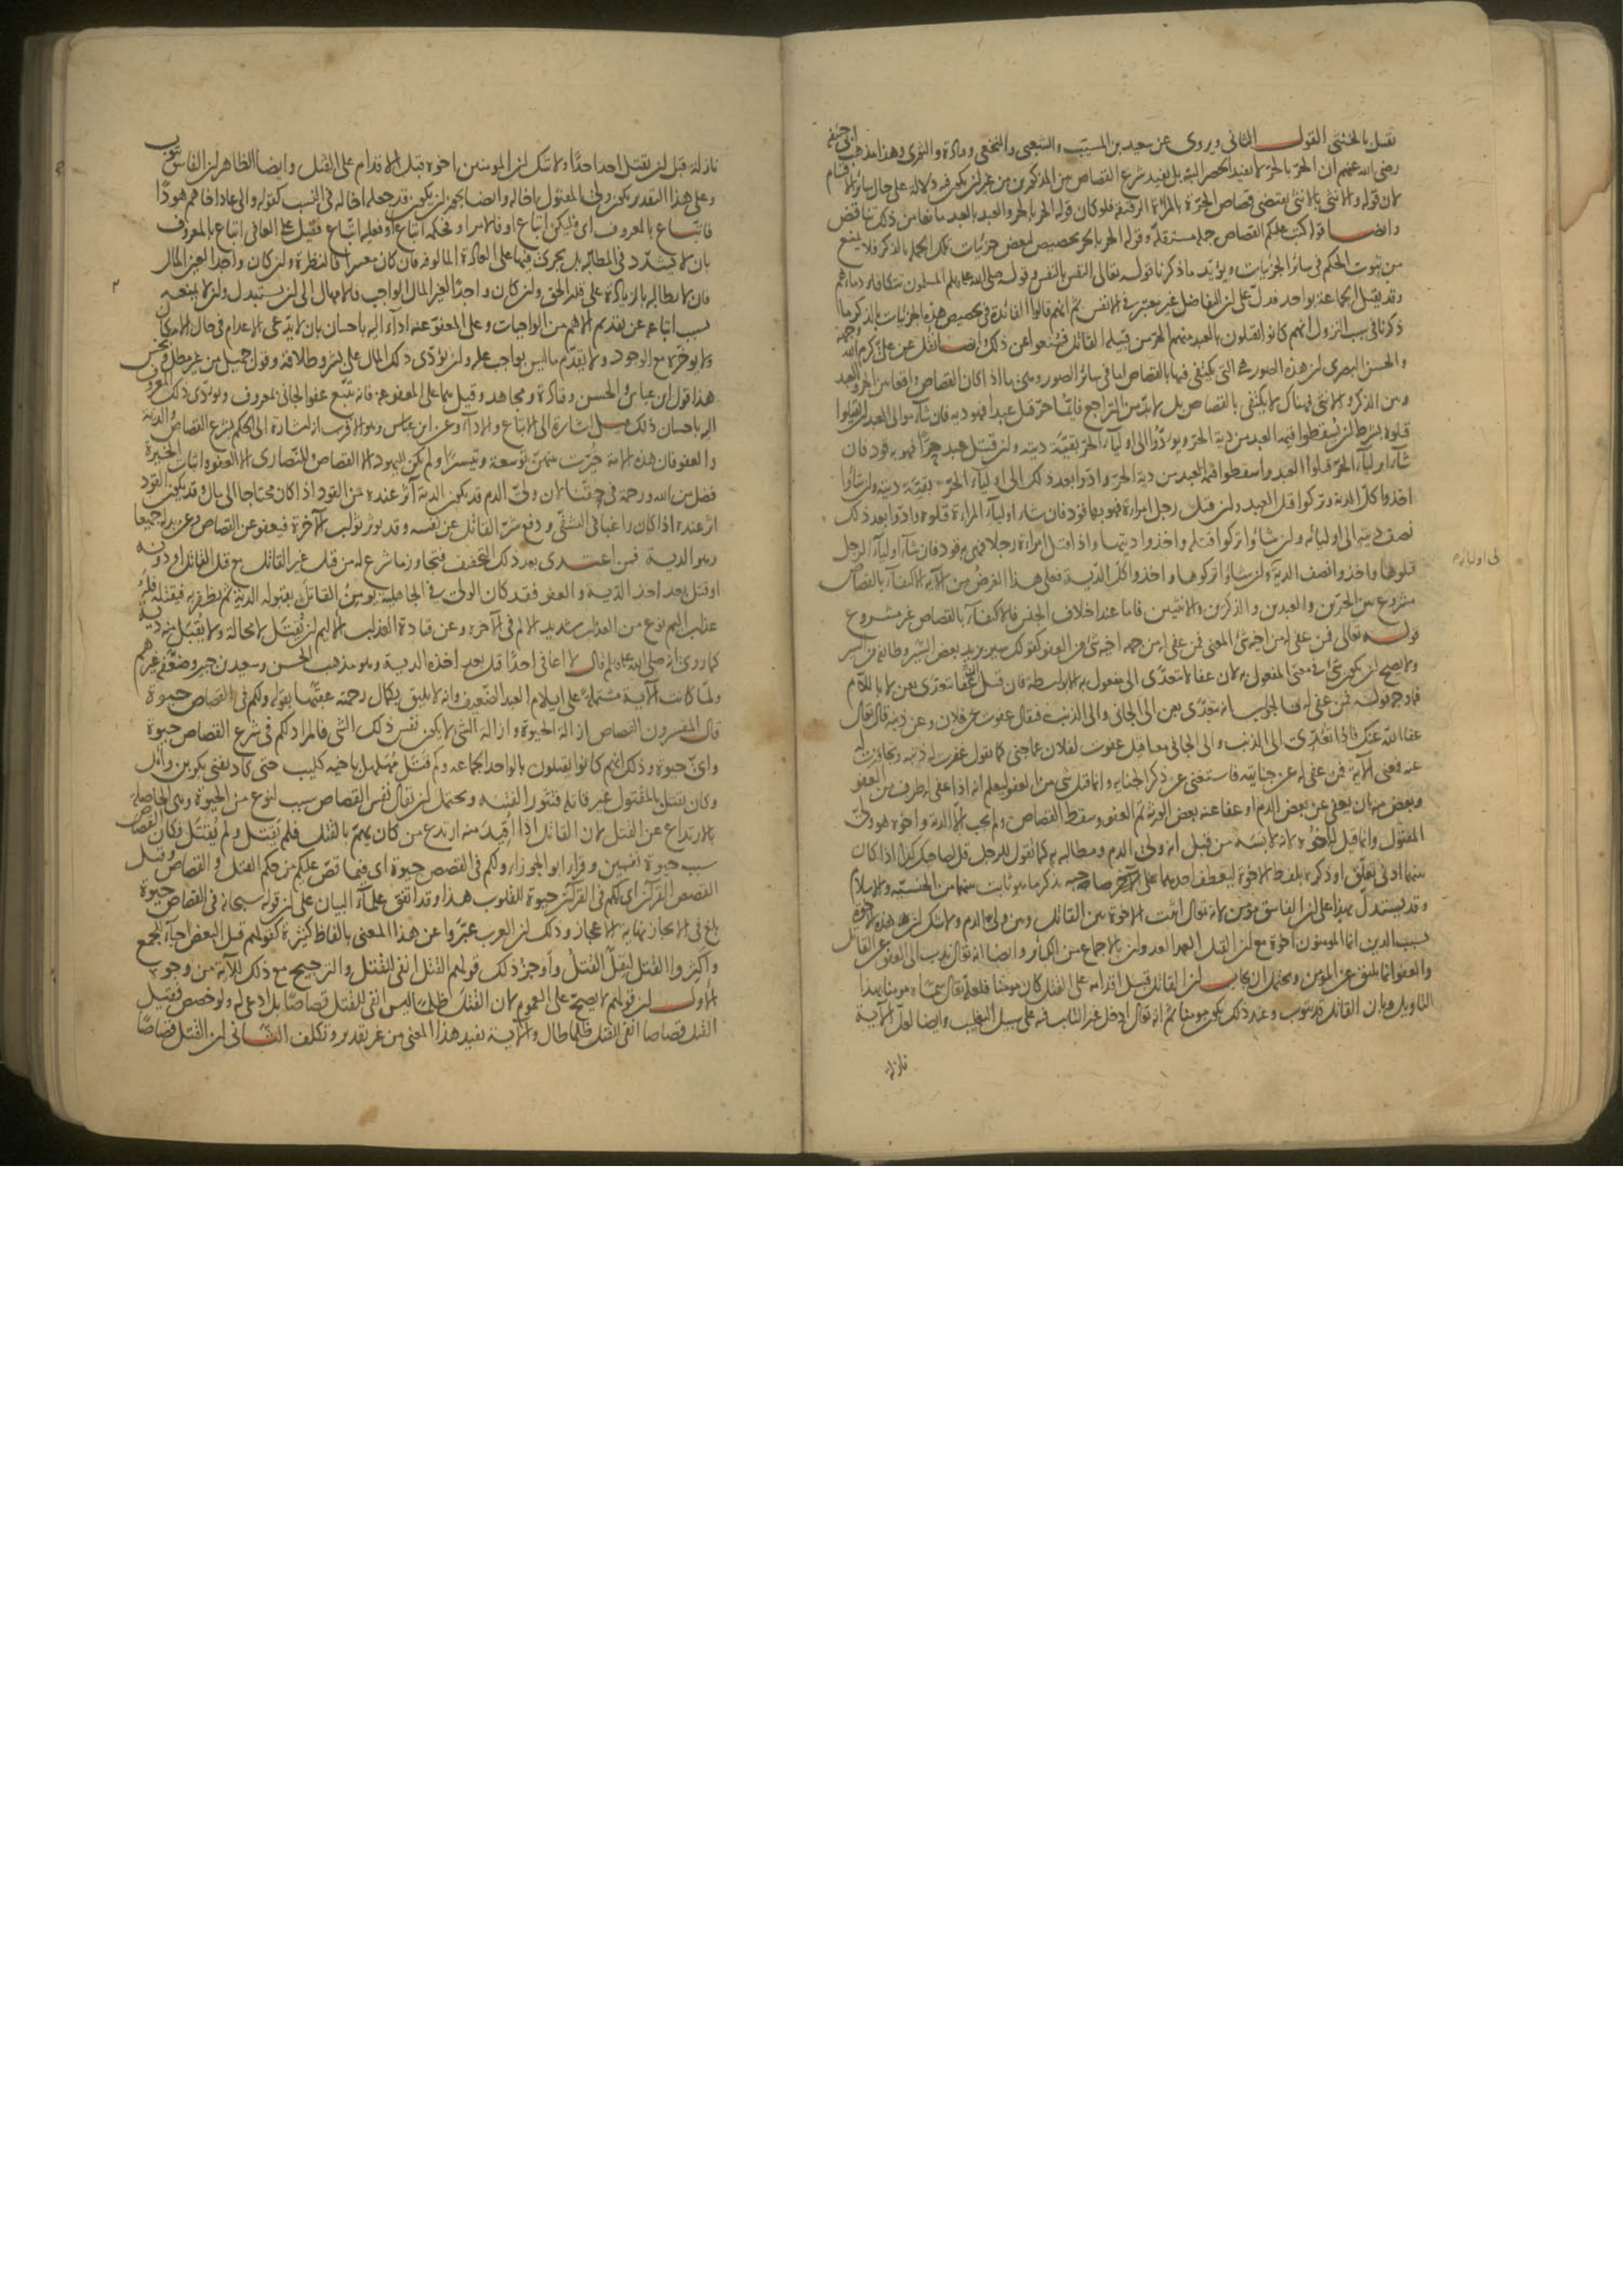 نقتل بالخنثى القول الثاني ويروى عن سعيد بن المسيب والشعبي والنخعي وقتادة والثوري وهذا مذهب ابي حنيفة
رضي الله عنهم ان الحر بالحر لا يفيد الحصر البتة بل يفيد شرع القصاص بين المذكورين من غير ان يكون فيه دلالة على حال سائر الاقسام
لان قوله والانثى بالانثى يقتضي قصاص الحرة بالمرأة الرقيقة فلو كان قوله الحر بالحر والعبد بالعبد مانعا من ذلك تناقض
وايضا قوله كتب عليكم القصاص جملة مستقلة وقوله الحر بالحر تخصيص لبعض جزئيات تلك الجملة بالذكر فلا يمنع
من ثبوت الحكم في سائر الجزئيات ويؤيد ما ذكرنا قوله تعالى النفس بالنفس وقوله صلى الله عليه وسلم المسلمون تتكافؤ دماؤهم
وقد يقتل الجماعة بواحد فدل على ان التفاضل غير معتبر في الانفس ثم انهم قالوا الفائدة في تخصيص هذه الجزئيات بالذكر ما
ذكرنا في سبب النزول انهم كانوا يقتلون بالعبد منهم الحر من قبيلة القاتل فمنعوا عن ذلك وايضا نقل عن علي كرم الله وجهه
والحسن البصري ان هذه الصور هي التي يكتفى فيها بالقصاص اما في سائر الصور وهي ما اذا كان القصاص واقعا بين الحر والعبد
وبين الذكر والانثى فهناك لا يكتفى بالقصاص بل لابد من التراجع فايما حر قتل عبدا فهو به قود فان شاء موالي العبد ان يقتلوا
قتلوه بشرط ان يسقطوا قيمة العبد من دية الحر ويؤدوا الى اولياء الحر بقية ديته وان قتل عبد حرا فهو به قود فان
شاء اولياء الحر قتلوا العبد واسقطوا قيمة العبد من دية الحر وادوا بعد ذلك الى اولياء الحر بقية ديته وان شاؤا
اخذوا كل الدية وتركوا قتل العبد وان قتل رجل امراة فهو بها قود فان شاء اولياء المراة قتلوه وادوا بعد ذلك
نصف ديته الى اوليائه وان شاؤا تركوا قتله واخذوا ديتها واذا قتل امراة رجلا فهي به قود فان شاء اولياء الرجل
قتلوها واخذوا نصف الدية وان شاؤا تركوها واخذوا كل الدية فعلى هذا الغرض من الآية الاكتفاء بالقصاص
مشروع بين الحرين والعبدين والذكرين والانثيين فاما عند اختلاف الجنس فالاكتفاء بالقصاص غير مشروع
قوله تعالى فمن عفي له من اخيه شئ المعنى فمن عفي له من جهة اخيه شئ من العفو كقولك سير بزيد بعض السير وطائفة من السير
ولا يصح ان يكون شئ في معنى المفعول به لان عفا لا يتعدى الى مفعول به الا بواسطة فان قيل عفا يتعدى بعن لا باللام
فما وجه قوله فمن عفي له فالجواب انه يتعدى بعن الى الجاني والى الذنب فيقال عفوت عن فلان وعن ذنبه قال تعالى
عفا الله عنك فاذا تعدى الى الذنب والى الجاني معا قيل عفوت لفلان عما جنى كما تقول غفرت له ذنبه وتجاوزت له
عنه فمعنى الآية فمن عفي له عن جنايته فاستغنى عن ذكر الجناية وانما قيل شئ من العفو ليعلم انه اذا عفي له طرف من العفو
وبعض منه بان يعفى عن بعض الدم او عفا عنه بعض الورثة تم العفو وسقط القصاص ولم يجب الا الدية واخوه هو ولي
المقتول وانما قيل له اخوه لانه لابسه من قبل انه ولي الدم ومطالبه به كما تقول للرجل قل لصاحبك كذا اذا كان
بينهما ادنى تعلق او ذكره بلفظ الاخوة ليعطف احدهما على الآخر صاحبه بذكر ما هو ثابت بينهما من الجنسية والاسلام
وقد يستدل بهذا على ان الفاسق مؤمن لانه تعالى اثبت الاخوة بين القاتل وبين ولي الدم ولا شك ان هذه الاخوة
بسبب الدين انما المؤمنون اخوة مع ان القتل العمد العدوان بالاجماع من الكبائر وايضا انه تعالى ندب الى العفو عن القاتل
والعفو انما يليق عن المؤمن ويحتمل ان يجاب ان القاتل قبل اقدامه على القتل كان مؤمنا فلعله تعالى سماه مومنا بهذا
التاويل وبان القاتل قد يتوب وعند ذلك يكون مومنا ثم انه تعالى ادخل غير التائب فيه على سبيل التغليب وايضا لعل الآية
نازلة
الى اوليائه
نازلة قبل ان يقتل احد احدا ولا شك ان المؤمنين اخوة قبل الاقدام على القتل وايضا الظاهر ان الفاسق يتوب
وعلى هذا التقدير يكون ولي المقتول اخا له وايضا يجوز ان يكون قد جعله اخا له في النسب كقوله والى عاد اخاهم هودا
فاتباع بالمعروف اي فليكن اتباع او فالامر او فحكمه اتباع او فعليه اتباع فقيل على العافي اتباع بالمعروف
بان لا يتشدد في المطالبة بل يجري فيها على العادة المالوفة فان كان معسرا فالنظرة وان كان واجدا لعين المال
فان لا يطالبه بالزيادة على قدر الحق وان كان واجدا لغير المال الواجب فالامهال الى ان يستبدل وان لا يمنعه
بسبب اتباعه عن تقديم الاهم من الواجبات وعلى المعفو عنه اداء اليه باحسان بان لا يدعي الاعدام في حال الامكان
ولا يؤخره مع الوجود ولا يقدم ما ليس بواجب عليه وان يؤدي ذلك المال على بشر وطلاقة وقول جميل من غير مطل وبخس
هذا قول ابن عباس والحسن وقتادة ومجاهد وقيل هما على المعفو عنه فانه يتبع عفو الجاني بمعروف ويؤدي ذلك المعروف
اليه باحسان ذلك قيل اشارة الى الاتباع والاداء وعن ابن عباس وهو الاقرب انه اشارة الى الحكم بشرع القصاص والدية
والعفو فان هذه الامة خيرت بينهن توسعة وتيسيرا ولم يكن لليهود الا القصاص وللنصارى الا العفو واثبات الخيرة
فضل من الله ورحمة في حقنا لان ولي الدم قد يكون الدية آثر عنده من القود اذا كان محتاجا الى مال وقد يكون القود
آثر عنده اذا كان راغبا في التشفي ودفع شر القاتل عن نفسه وقد يوثر ثواب الآخرة فيعفو عن القصاص وعن بدله جميعا
وهو الدية فمن اعتدى بعد ذلك التخفيف فتجاوز ما شرع له من قتل غير القاتل مع قتل القاتل او دونه
او قتل بعد اخذ الدية والعفو فقد كان الولي في الجاهلية يؤمن القاتل بقبوله الدية ثم يظفر به فيقتله فله
عذاب اليم نوع من العذاب شديد الالم في الآخرة وعن قتادة العذاب الاليم ان يقتل لا محالة ولا يقبل منه دية
كما روي انه صلى الله عليه وسلم قال لا اعافي احدا قتل بعد اخذه الدية وهو مذهب الحسن وسعيد بن جبير وضعفه غيرهم
ولما كانت الآية مشتملة على ايلام العبد الضعيف وانه لا يليق بكمال رحمته عقبها بقوله ولكم في القصاص حيوة
قال المفسرون القصاص ازالة الحيوة وازالة الشئ لا يكون نفس ذلك الشئ فالمراد لكم في شرع القصاص حيوة
واي حيوة وذلك انهم كانوا يقتلون بالواحد الجماعة وكم قتل مهلهل باخيه كليب حتى كاد يفني بكر بن وائل
وكان يقتل بالمقتول غير قاتله فتثور الفتنة ويحتمل ان يقال نفس القصاص سبب لنوع من الحيوة وهي الحاصلة
بالارتداع عن القتل لان القاتل اذا اقيد منه ارتدع من كان يهم بالقتل فلم يقتل ولم يقتل فكان القصاص
سبب حيوة نفسين وقرأ ابو الجوزاء ولكم في القصص حيوة اي فيما قص عليكم من حكم القتل والقصاص وقيل
القصص القرآن اي لكم في القرآن حيوة للقلوب هذا وقد اتفق علماء البيان على ان قوله سبحانه في القصاص حيوة
بلغ في الايجاز نهاية الاعجاز وذلك ان العرب عبروا عن هذا المعنى بالفاظ كثيرة كقولهم قتل البعض احياء للجميع
واكثروا القتل ليقل القتل واوجز ذلك قولهم القتل انفى للقتل والترجيح مع ذلك للآية من وجوه
الاول ان قولهم لا يصح على العموم لان القتل ظلما ليس انفى للقتل قصاصا بل ادعى له ولو خصص فقيل
القتل قصاصا انفى للقتل ظلما طال والآية تفيد هذا المعنى من غير تقدير وتكلف الثاني ان القتل قصاصا